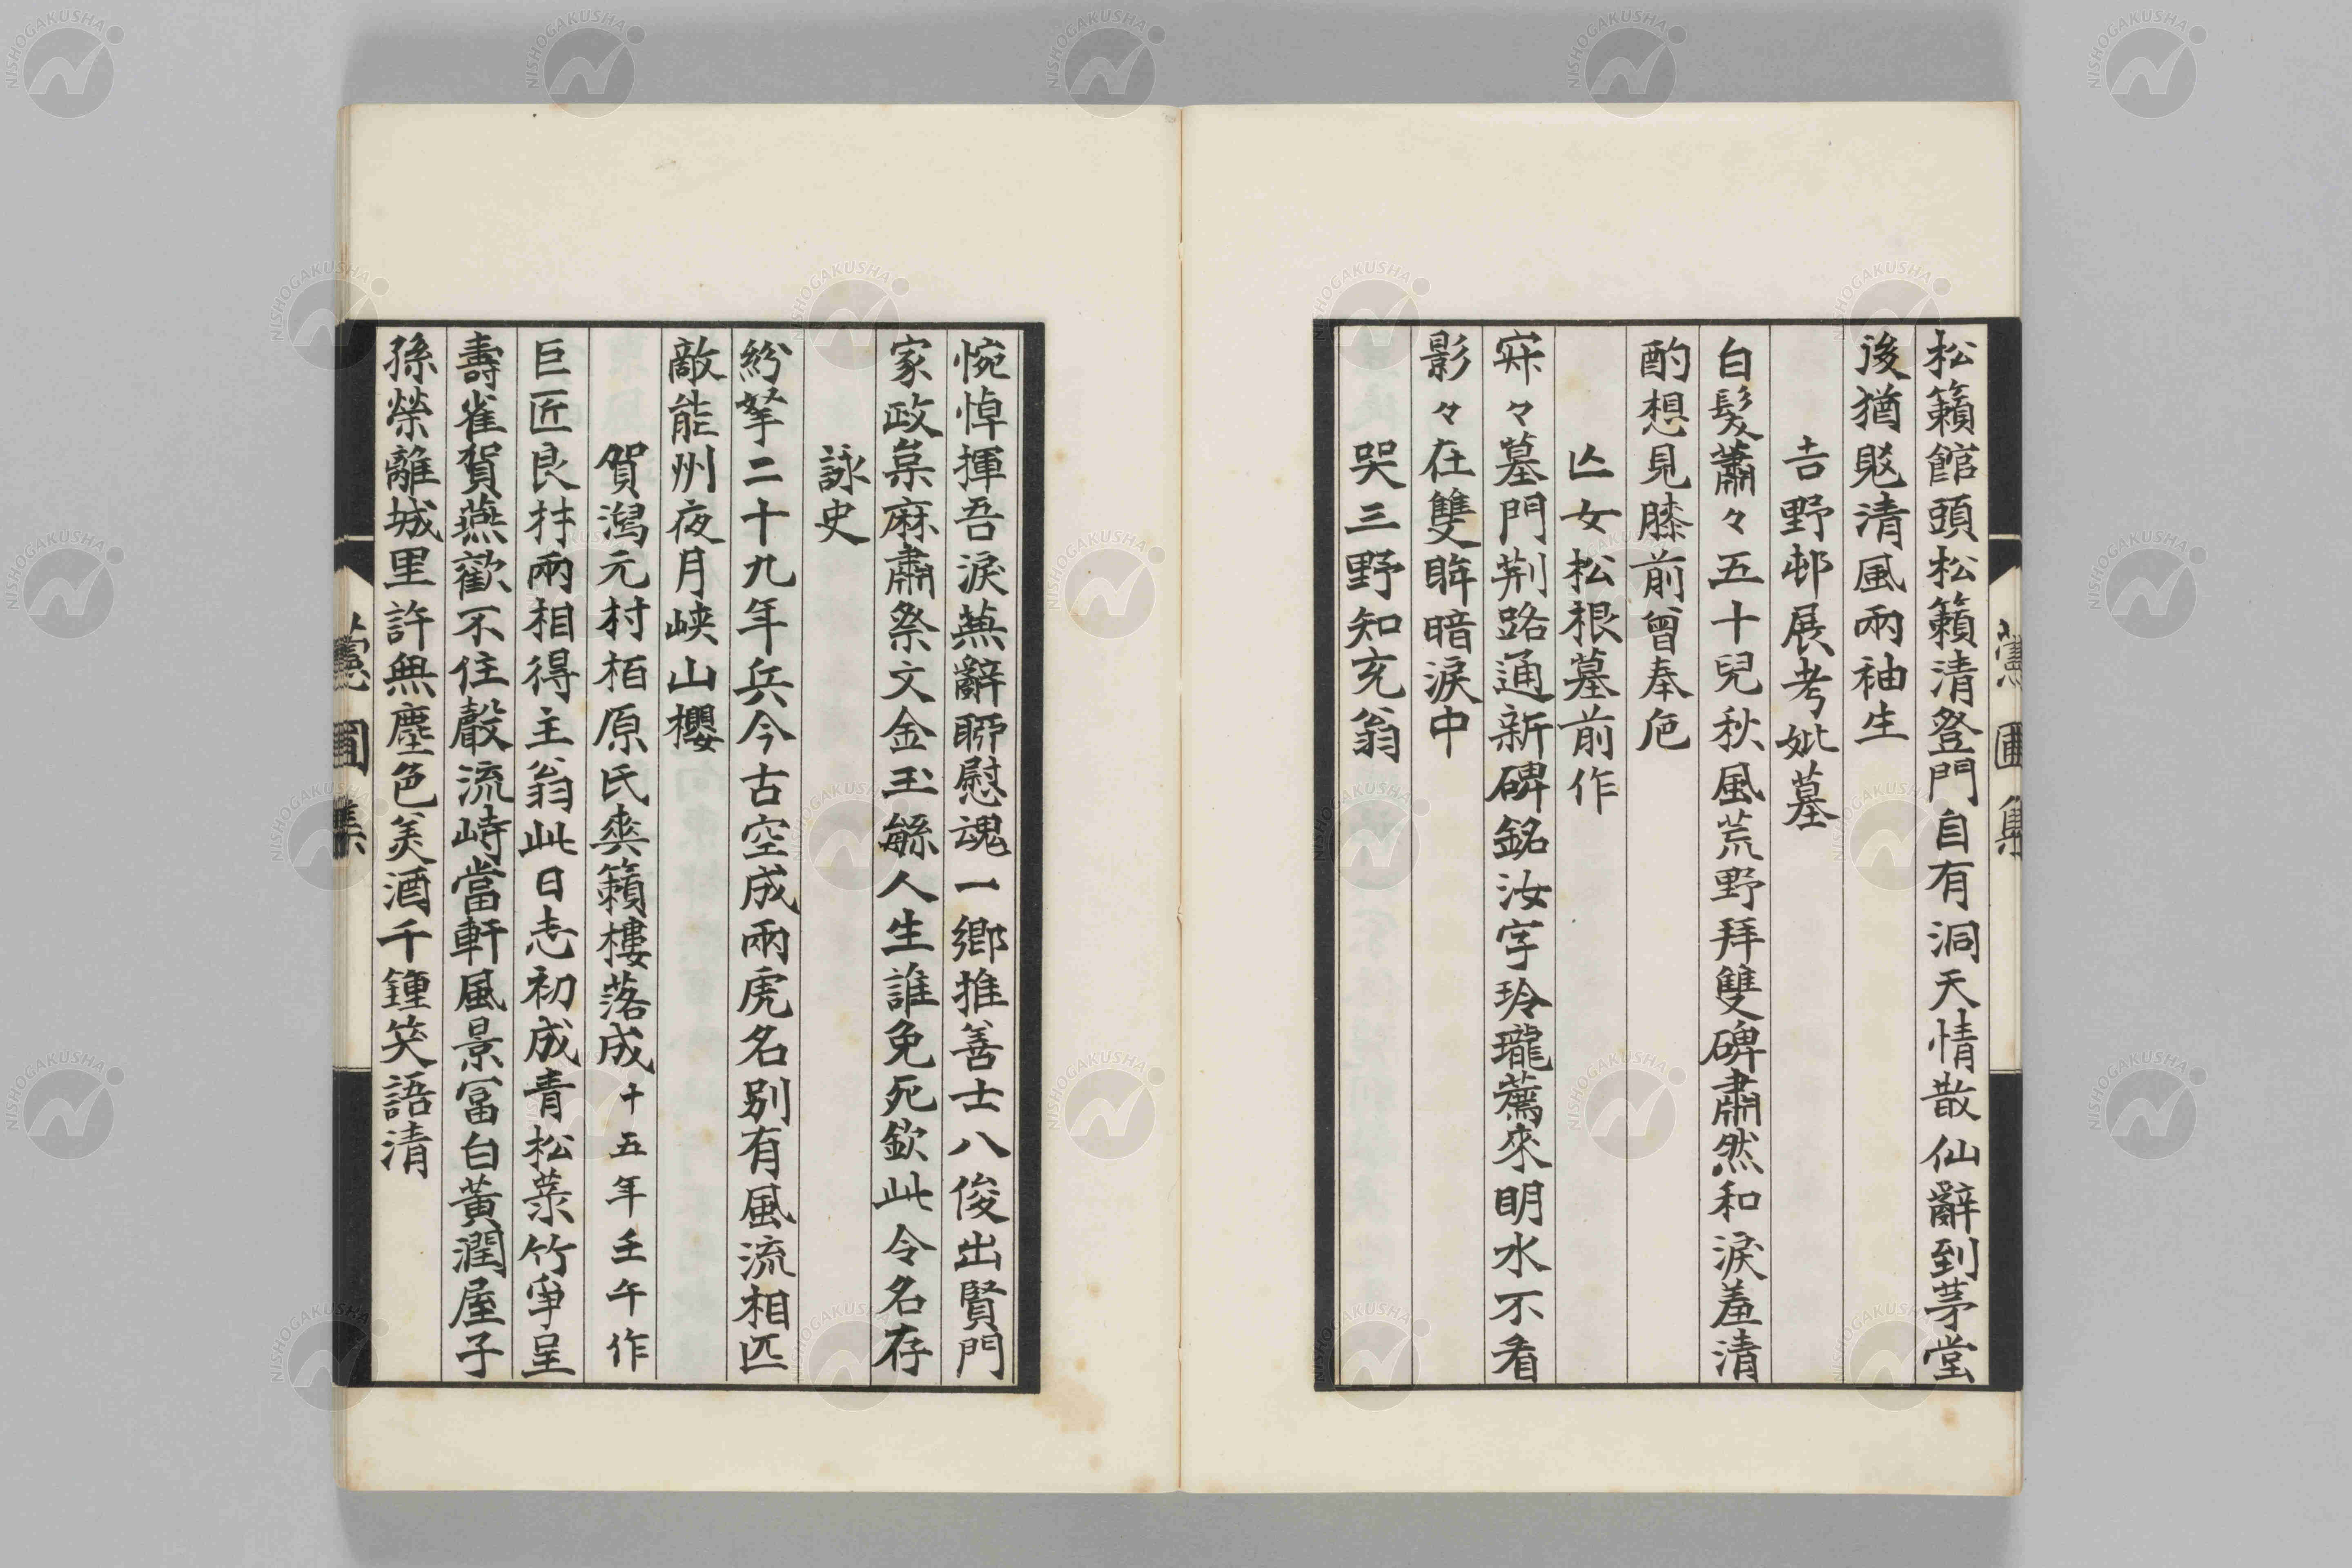 松籟館頭松籟清登門自有洞天情散仙辭到茅堂
後猶覐清風兩袖生
吉野邨展考妣墓
白髮蕭々五十兒秋風荒野拜雙碑肅然和淚羞清
酌想見膝前曾奉卮
亾女松根墓前作
寂々墓門荊路通新碑銘汝字玲瓏薦來明水不看
影々在雙眸暗淚中
哭三野知充翁
惋悼揮吾淚蕪辭聊慰魂一鄉推善士八俊出賢門
家政枲麻肅祭文金玉緐人生誰免死欽此令名存
詠史
紛拏二十九年兵今古空成兩虎名別有風流相匹
敵能州夜月峽山櫻
賀潟元村栢原氏爽籟樓落成十五年壬午作
巨匠良材兩相得主翁此日志初成青松葉竹爭呈
壽雀賀燕歡不住聲流峙當軒風景富白黃潤屋子
孫榮離城里許無塵色美酒千鍾笑語清
圃集
NISHOGAKUSHA